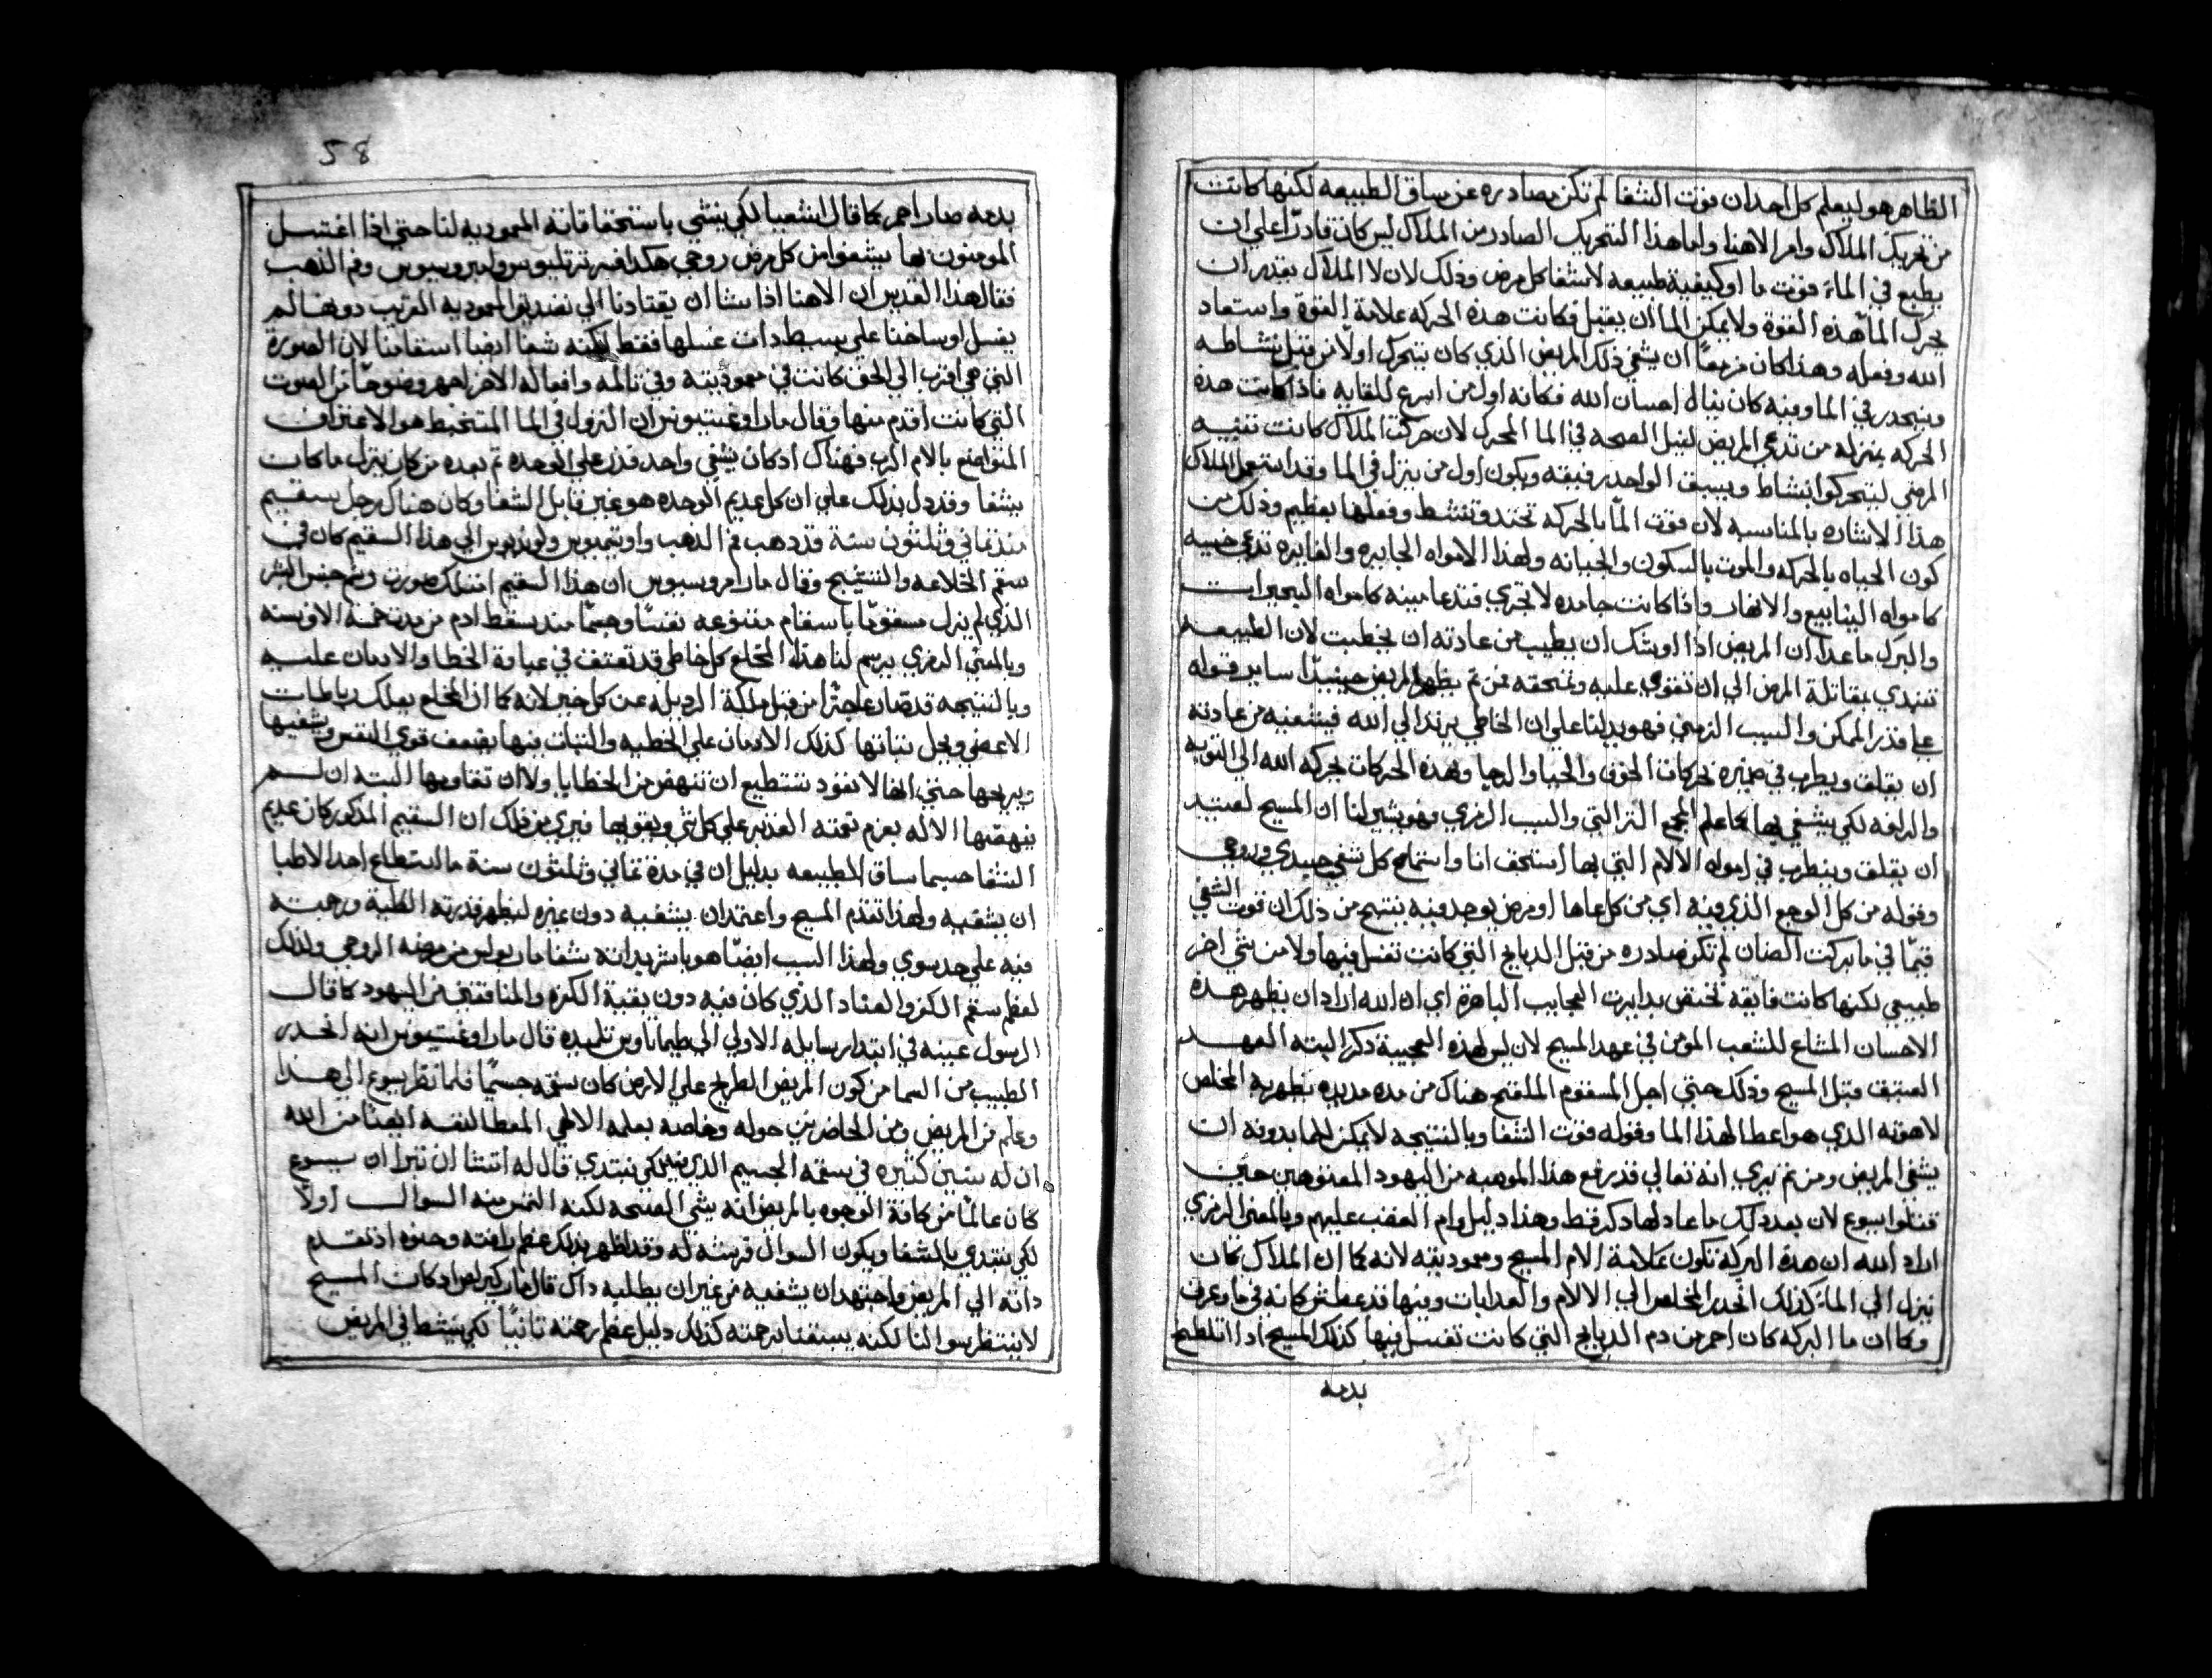 الظاهر هو ليعلم كل احد ان قوت الشفا لم تكن صادره عن ساق الطبيعه لكنها كانت
من تحريك الملاك وامر الاهنا واما هذا التحريك الصادر من الملاك ليس كان قادرًا علي ان
يطبع في الماء قوت ما او كيفية طبيعه لاشفا كل مرض وذلك لان لا الملاك يقدر ان
يحرك الماّ هذه القوة ولا يمكن الما ان يقبل فكانت هذه الحركه علامة القوة واستعاد
الله وفعله وهذا كان مزمعًا ان يشفي ذلك المريض الذي كان يتحرك اولًا من قبل نشاطه
وينحدر في الما ومنه كان ينال احسان الله فكانه اول من اسرع للقايه فاذا كانت هذه
الحركه بمنزله من تدعي المريض لنيل الصحه في الما المحرك لان حركت الملاك كانت تنبيه
المرضي ليتحركوا بنشاط ويسبق الواحد رفيقه ويكون اول من ينزل في الما وقد استعمل الملاك
هذا الاشاره بالمناسبه لان قوت الماّ بالحركه تحتد وتنشط وفعلها يعظم وذلك من
كون الحياه بالحركه والموت بالسكون والجبانه ولهذا الامواه الجايره والفايره تدعي حييه
كامواه الينابيع والانهار واذا كانت جامده لا تجري فتدعا ميته كامواه البحيرات
والبرك ماعدا ان المريض اذا اوشك ان يطيب من عادته ان يخطبت لان الطبيعه
تبتدي بمقاتلة المرض الي ان تقوي عليه وتمحقه فمن ثم يظهر المريض حينيذٍ ساير قوله
علي قدر الممكن والسبب الزمني فهو يدلنا علي ان الخاطي يرتد الي الله فيشفيه من عادته
ان يقلق ويطرب في ضميره بحركات الخوف والحيا والرجا وهذه الحركات يحركه الله الي التوبه
والرافه لكي يشفي بها كما علم المجمع التراالتي والسبب الرمزي فهو يشير لنا ان المسيح لعتيد
ان يقلق ويضطرب في امواه الالام التي بها استحق انا واستماح كل شفي جسدي وروحي
وقوله من كل الوجع الذي فيه اي من كل عاها او مرض يوجد فيه ينتج من ذلك ان قوت الشفي
قيمًا في ما بركت الضان لم تكن صادره من قبل الدبايح التي كانت تغسل فيها ولا من شي اخر
طبيعي لكنها كانت فايقه تختص بدايرت العجايب الباهرة اي ان الله اراد ان يظهر هذه
الاحسان المشاع للشعب المومن في عهد المسيح لان ليس لهذه العجيبة ذكر البته العهد
العتيق قبل المسيح وذلك حتي اجل المسقوم الملقح هناك من مده مديده يظهر به المخلص
لاهوته الذي هو اعطا لهذا الما وقوله قوت الشفا وبالنتيجه لا يمكن للما بدونه ان
يشفي المريض ومن ثم نري انه تعالي قد رفع هذا الموهبه من اليهود الممقوهين حين
قتلوا يسوع لان بعد ذلك ما عاد لها ذكر قط وهذا دليل وام الغضب عليهم وبالمعني الرمزي
اراد الله ان هذه البركة تكون علامة الام المسيح ومعموديته لانه كما ان الملاك كان
ينزل الي الماء كذلك انحدر المخلص الي الالام والعدابات وفيها قد غطس كانه في ما وغرف
وكما ان ما البركه كان احمر من دم الدبايح التي كانت تغسل فيها كذلك المسيح اذا اتلطخ
بدمه
58
بدمه صار احمر كما قال اشعيا لكي ينشي باستحقاقاته المعموديه لنا حتي اذا اغتسل
المومنون بها يشفوا من كل مرض روحي هكذا فسر ترتليوس وامبروسيوس وفم الذهب
فقال هذا القديس ان الاهنا اذا شا ان يقتادنا الي تصديق المعموديه القريب دوهنا لم
يغسل اوساخنا علي بسيط دات غسلها فقط لكنه شفا ايضا اسقامنا لان الصورة
التي هي اقرب الي الحق كانت في معموديته وفي تالمه وافعاله الاخر اظهر وضوحًا من الصوت
التي كانت اقدم منها وقال مار اوغستينوس ان النزول في الما المتخبط هو الاعتراف
المتواضع بالام الرب فهناك اذ كان يشفي واحد فدل علي الوحده ثم بعده من كان ينزل ما كان
يشفا وقد دل بذلك علي ان كل عديم الوحده هو غير قابل الشفا وكان هناك رجل سقيم
منذ ثماني وثلثون سنة قد ذهب فم الذهب واوتيميوس ولونديوس الي هذا السقيم كان في
سقم الخلاعه والتشنج وقال مار امروسيوس ان هذا السقيم امتلك صورت وشم جنس البشر
الذي لم يزل مسقومًا باسقام متنوعه نفسًا وجسمًا منذ سقط ادم من مدت خمسة الاف سنه
وبالمعني الرمزي يرسم لنا هذا المخلع كل خاطي قد تعتق في عباءة الخطا والادمان عليه
وبالنتيجه قد صار عاجزًا من قبل ملكة الرديله عن كل خير لانه كما ان المخلع يهلك رباطات
الاعضي ويحل ثباتها كذلك الادمان علي الخطيه والثبات فيها يضعف قوي النفس ويشفيها
ويريحها حتي انها لا تعود تستطيع ان تنهض من الخطايا ولا ان تقاومها البته ان لم
ينهضها الاله بعزم نعمته القدير علي كل شي ويقويها فيري من ذلك ان السقيم المذكور كان عديم
الشفا حسبما ساق الطبيعه بدليل ان في مدة ثماني وثلثون سنة ما استطاع احد الاطبا
ان يشفيه ولهذا تقدم المسيح واعتمد ان يشفيه دون غيره ليظهر قدرته الطبية ورحمته
فيه علي حد سوي ولهذا السبب ايضًا هو باشر بداته شفا مار بولس من مرضه الروحي ولذلك
لعظم سقم الكفر والعناد الذي كان فيه دون بقية الكفرة والمنافقين من اليهود كما قال
الرسول عينه في ابتدا رسايله الاولي الي طيماتاوس تلميذه قال مار اوغستينوس انه انحدر
الطبيب من السما من كون المريض الطريح علي الارض كان سقمه جسيمًا فلما نظر يسوع الي هذا
وعلم من المريض ومن الحاضرين حوله وخاصه بعلمه الالهي المعطا لنفسه ايضا من الله
ان له سنين كثيره في سقمه الجسيم الذي لكي يبتدي قال له اتشا ان تبرا ان يسوع
كان عالمًا من كافة الوجوه بالمريض انه يشي الصحه لكنه التمس منه السوال اولًا
لكي يبتدي بالشفا ويكون السوال قرينته له وقد اظهر بذلك عظم رافته وحنوه اذ تقدم
داته الي المريض واجتهد ان يشفيه من غير ان يطلبه داك قال مار كيرلس اذ كان المسيح
لا ينتظر سوالنا لكنه يسبقنا برحمته كذلك دليل عظم رحمته ثانيًا لكي ينشط في المريض